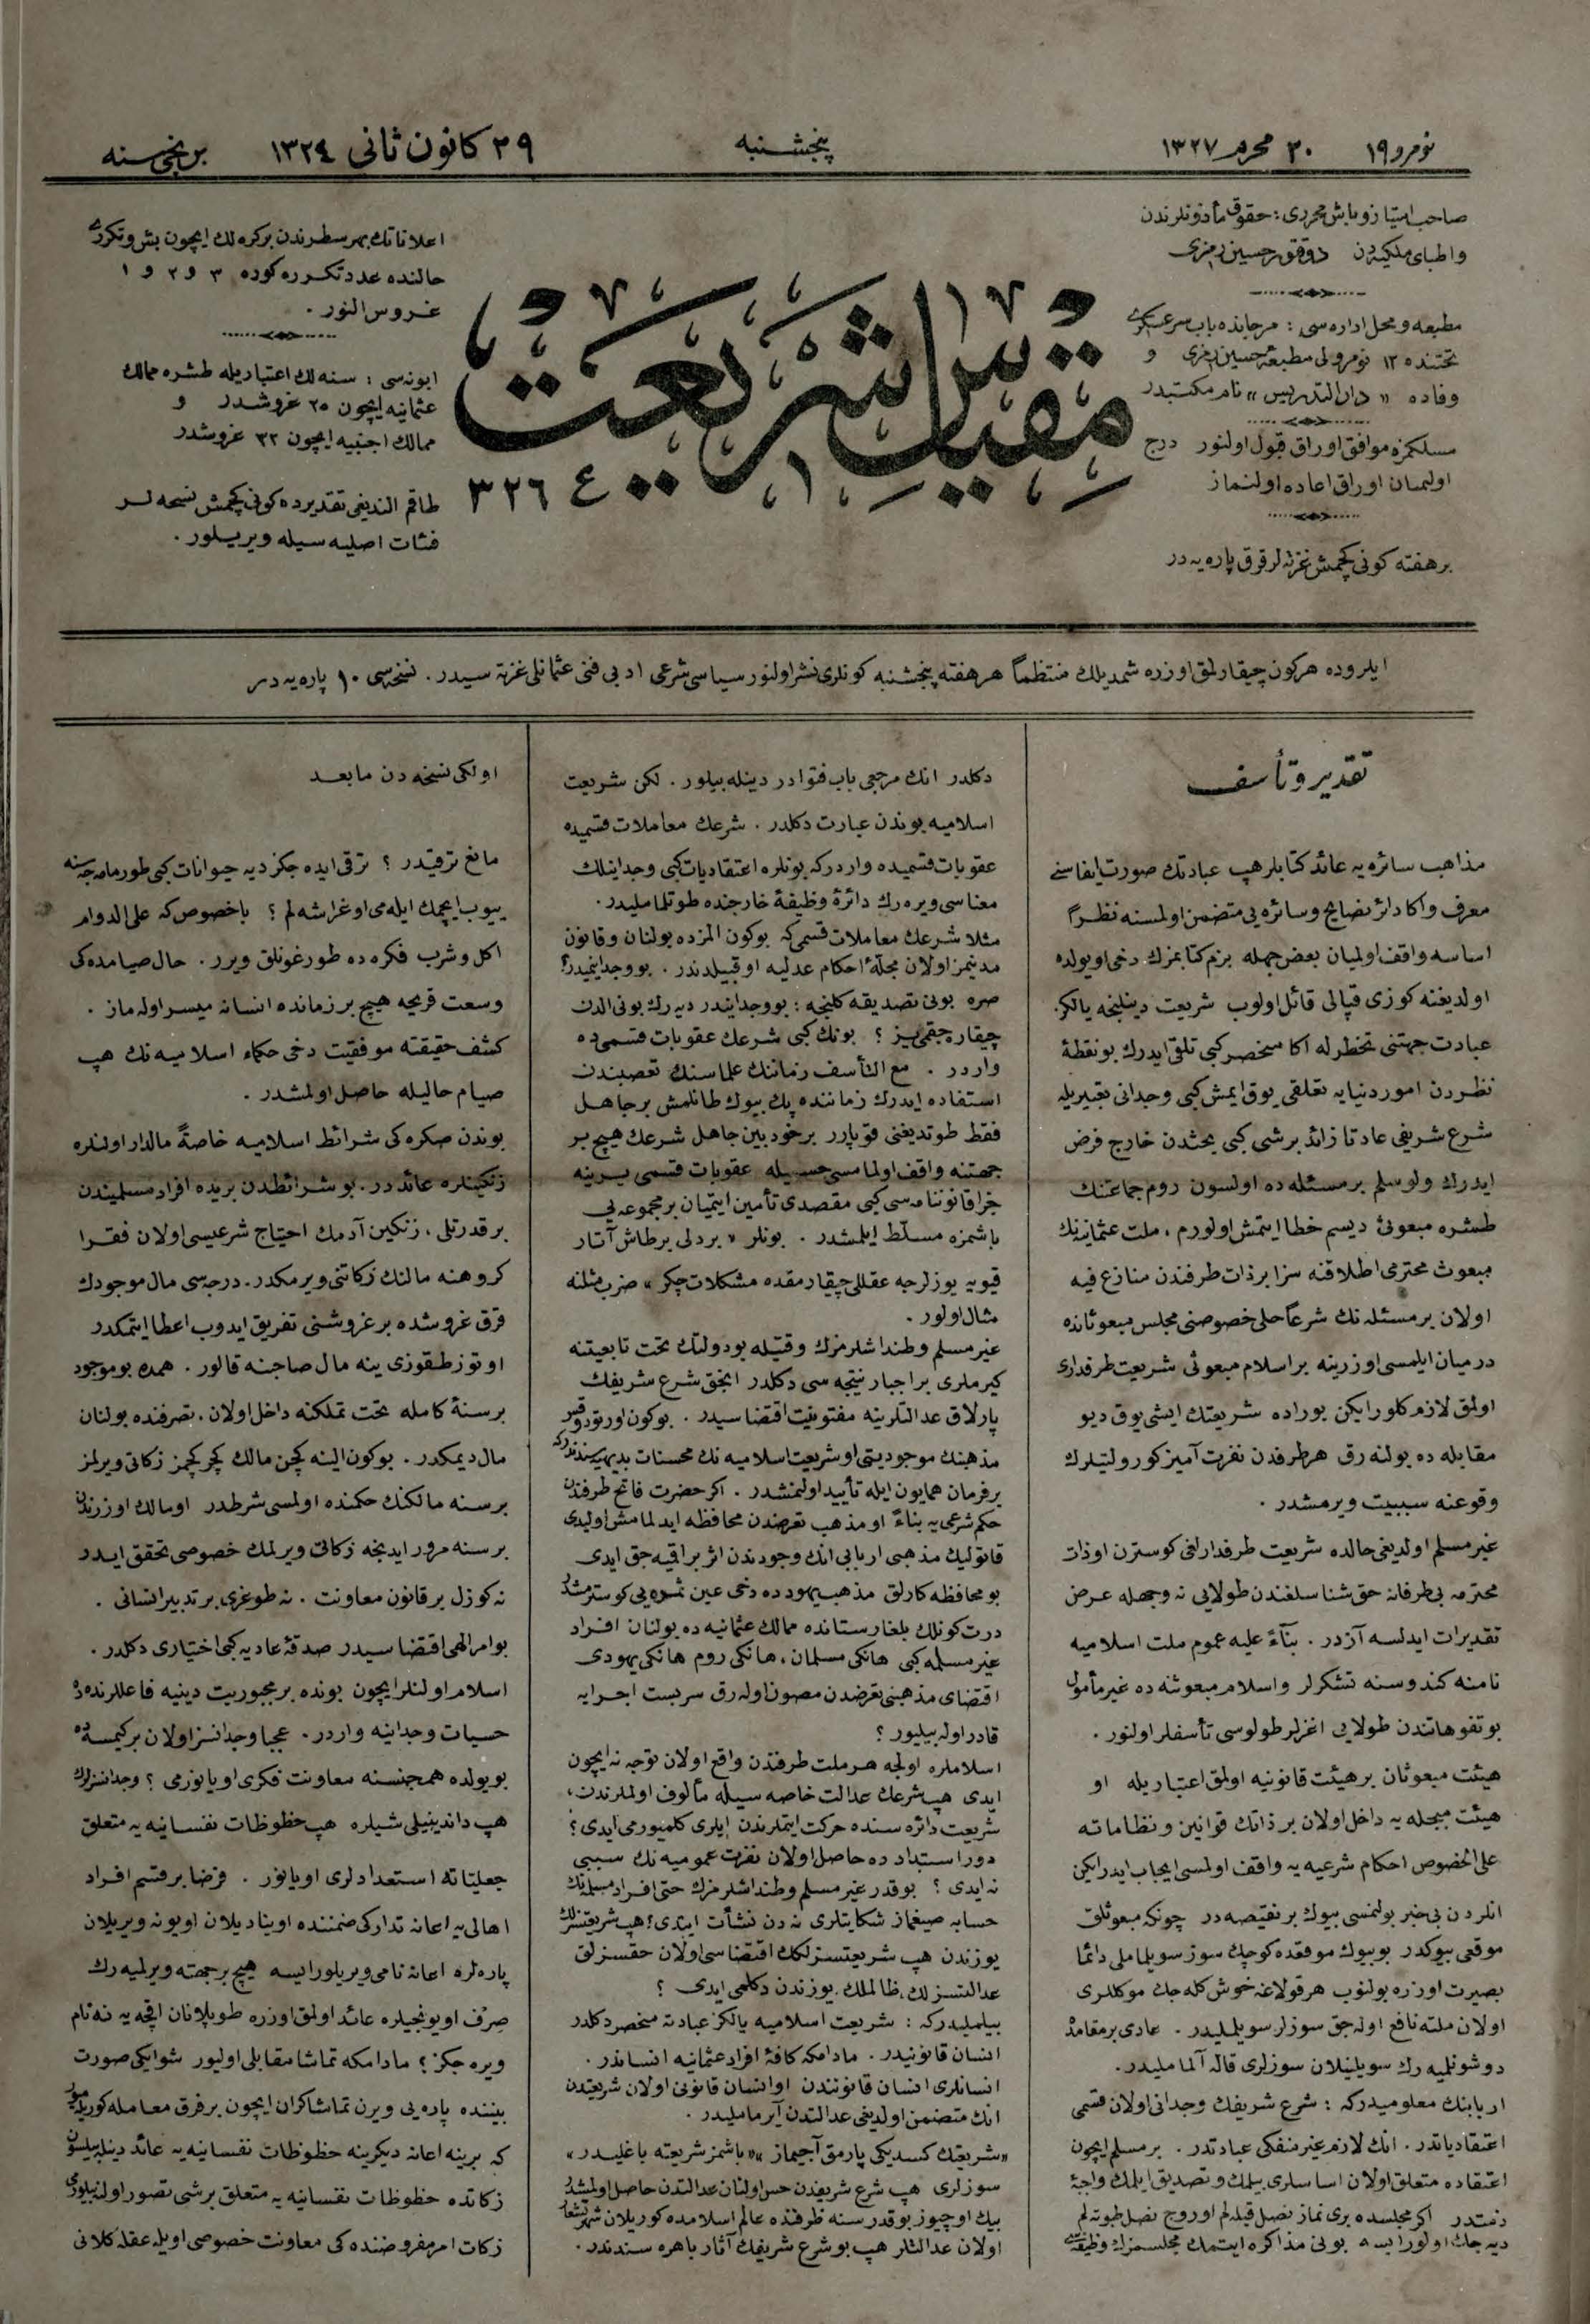 نومرو ١٩
٣٠ محرم ١٣٢٧
پنجشنبه
٢٩ كانون ثانی ١٣٢٤
برنجی سنه
صاحب امتیاز و باش محرری : حقوق مأذونلرندن
واطبای ملكیه‌دن دوقتور حسین رمزی
مطبعه و محل اداره‌سی : مرجانده باب سرعسكری
تحتنده ١٢ نومرولی مطبعهٔ حسین رمزی و
وفاده « دار التدریس » نام مكتبدر
مسلكمزه موافق اوراق قبول اولنور درج
اولنمیان اوراق اعاده اولنماز
بر هفته كونی كچمش غزته‌لر قرق پاره‌یه‌در
مقیاس شریعت
٣٢٦ ع ١
اعلاناتك بهر سطرندن بر كره‌لك ایچون بش و تكرری
حالنده عدد تكرره كوره ٣ و ٢ و ١
غروس النور .
ابونه‌سی : سنه‌لك اعتباریله طشره ممالك
عثمانیه ایچون ٢٥ غروشدر و
ممالك اجنبیه ایچون ٣٢ غروشدر
طاقم الندیغی تقدیرده كونی كچمش نسخه‌لر
فئات اصلیه سیله ویریلور .
ایلروده هركون چیقارلمق اوزره شمدیلك منتظماً هر هفته پنجشنبه كونلری نشر اولنور سیاسی شرعی ادبی فنی عثمانلی غزته سیدر . نسخه‌سی ١٠ پاره‌یه‌در
تقدیر و تأسف
مذاهب سائره‌یه عائد كتابلر هپ عبادتك صورت ایفاسنی
معرف واكا دائر نصایح وسائره‌یی متضمن اولمسنه نظراً
اساسه واقف اولمیان بعض جهله بزم كتابمزك دخی او یولده
اولدیغنه كوزی قپالی قائل اولوب شریعت دینلنجه یالكز
عبادت جهتنی تخطرله اكا منحصر كبی تلقی ایدرك بو نقطهٔ
نظردن امور دنیایه تعلقی یوق ایمش كبی وجدانی تعبیریله
شرع شریفی عادتا زائد بر شی كبی بحثدن خارج فرض
ایدرك ولو سلم بر مسئله‌ده اولسون روم جماعتنك
طشره مبعوثی دیسم خطا ایتمش اولورم ، ملت عثمانیه‌نك
مبعوث محترمی اطلاقنه سزا بر ذات طرفندن منازع فیه
اولان بر مسئله‌نك شرعاً حلی خصوصنی مجلس مبعوثانده
درمیان ایلمسی اوزرینه بر اسلام مبعوثی شریعت طرفداری
اولمق لازم كلور ایكن بوراده شریعتك ایشی یوق دیو
مقابله‌ده بولنه‌رق هر طرفدن نفرت آمیز كورولتیلرك
وقوعنه سببیت ویرمشدر .
غیر مسلم اولدیغی حالده شریعت طرفدارلغی كوسترن اوذات
محترمه بی‌طرفانه حق‌شناسلغندن طولایی نه وجهله عرض
تقدیرات ایدلسه آزدر . بناءً علیه عموم ملت اسلامیه
نامنه كندوسنه تشكرلر واسلام مبعوثنه‌ده غیر مأمول
بو تفوهاتندن طولایی اغزلر طولوسی تأسفلر اولنور .
هیئت مبعوثان بر هیئت قانونیه اولمق اعتباریله او
هیئت مبجله‌یه داخل اولان بر ذاتك قوانین ونظاماته
علی‌الخصوص احكام شرعیه‌یه واقف اولمسی ایجاب ایدرایكن
انلردن بی‌خبر بولنمسی بیوك بر نقیصه‌در چونكه مبعوثلق
موقعی بیوكدر بو بیوك موقعده كوچك سوز سویلماملی دائما
بصیرت اوزره بولنوب هر قولاغه خوش كله‌جك موكلری
اولان ملته نافع اوله‌جق سوزلر سویلملیدر . عادی بر مقامده
دوشونلمیه‌رك سویلنیلان سوزلری قاله آلماملیدر .
اربابنك معلومیدركه : شرع شریفك وجدانی اولان قسمی
اعتقادیاتدر . انك لازم غیر منفكی عباداتدر . بر مسلم ایچون
اعتقاده متعلق اولان اساسلری بیلمك وتصدیق ایلمك واجبهٔ
ذمتدر اكر مجلسده بری نماز نصل قیله‌لم اوروج نصل طوته‌لم
دیه‌جك اولورایسه بونی مذاكره ایتمك مجلسمزك وظیفه‌سی
دكلدر انك مرجعی باب فتوادر دینله‌بیلور . لكن شریعت
اسلامیه بوندن عبارت دكلدر . شرعك معاملات قسمیده
عقوبات قسمیده واردركه بونلره اعتقادیات كبی وجدانیلك
معناسی ویره‌رك دائرهٔ وظیفه خارجنده طوتلماملیدر .
مثلا شرعك معاملات قسمی كه بوكون المزده بولنان وقانون
مدنیمز اولان مجلهٔ احكام عدلیه او قبیلدندر . بو وجدانیمیدر؟
صره بونی تصدیقه كلنجه : بو وجدانیدر دیه‌رك بونی الدن
چیقاره‌جقمی‌یز ؟ بونك كبی شرعك عقوبات قسمی‌ده
واردر . مع التأسف زماننك علماسنك تعصبندن
استفاده ایدرك زماننده پك بیوك طانلمش بر جاهل
فقط طوتدیغنی قوپارر بر خودبین جاهل شرعك هیچ بر
جهتنه واقف اولمامسی حسبیله عقوبات قسمی یرینه
جزا قانوننامه‌سی كبی مقصدی تأمین ایتمیان بر مجموعه‌یی
باشمزه مسلط ایلمشدر . بونلر « بر دلی بر طاش آتار
قیویه یوزلرجه عقللی چیقارمقده مشكلات چكر » ضرب مثلنه
مثال اولور .
غیر مسلم وطنداشلرمزك وقتیله بو دولتك تحت تابعیتنه
كیرملری بر اجبار نتیجه‌سی دكلدر انجق شرع شریفك
پارلاق عدالتلرینه مفتونیت اقتضاسیدر . بوكون اورتودوقس
مذهبنك موجودیتی او شریعت اسلامیه‌نك محسنات بدیهیسندندركه
بر فرمان همایون ایله تأیید اولنمشدر . اكر حضرت فاتح طرفندن
حكم شرعی‌یه بناءً او مذهب تعرضدن محافظه ایدلمامش اولیدی
قاتولیك مذهبی اربابی انك وجودندن اثر براقیه‌جق ایدی
بو محافظه‌كارلق مذهب یهودده دخی عین ثمره‌یی كوسترمشدر
درت كونلك بلغارستانده ممالك عثمانیه‌ده بولنان افراد
غیر مسلمه كبی هانكی مسلمان ، هانكی روم هانكی یهودی
اقتضای مذهبنی تعرضدن مصون اوله‌رق سربست اجرایه
قادر اوله‌بیلیور ؟
اسلاملره اولجه هر ملت طرفندن واقع اولان توجه نه ایچون
ایدی هپ شرعك عدالت خاصه‌سیله مألوف اولملرندن ،
شریعت دائره‌سنده حركت ایتملرندن ایلری كلمیورمی ایدی ؟
دور استبدادده حاصل اولان نفرت عمومیه‌نك سببی
نه ایدی ؟ بو قدر غیر مسلم وطنداشلرمزك حتی افراد مسلمه‌نك
حسابه صیغماز شكایتلری نه‌دن نشأت ایتدی؟ هپ شریعتسزلك
یوزندن هپ شریعتسزلكك اقتضاسی اولان حقسزلق
عدالتسزلك ، ظالملك یوزندن دكلمی ایدی ؟
بیلملیدركه : شریعت اسلامیه یالكز عباداته منحصر دكلدر
انسان قانونیدر . مادامكه كافهٔ افراد عثمانیه انساندر .
انسانلری انسان قانونندن او انسان قانونی اولان شریعتدن
انك متضمن اولدیغی عدالتدن آیرماملیدر .
« شریعتك كسدیكی پارمق آجیماز » « باشمز شریعته باغلیدر »
سوزلری هپ شرع شریفدن حس اولنان عدالتدن حاصل اولمشدر
بیك اوچیوز بو قدر سنه ظرفنده عالم اسلامده كوریلان شهرتشعار
اولان عدالتلر هپ بو شرع شریفك آثار باهره سندندر .
اولكی نسخه‌دن مابعد
مانع ترقیدر ؟ ترقی ایده‌جكز دیه حیوانات كبی طورمامه‌جه‌سنه
ییوب ایچمك ایله‌می اوغراشه‌لم ؟ باخصوص كه علی‌الدوام
اكل وشرب فكره‌ده طورغونلق ویرر . حال صیامده‌كی
وسعت قریحه هیچ بر زمانده انسانه میسر اوله‌ماز .
كشف حقیقته موفقیت دخی حكماء اسلامیه‌نك هپ
صیام حالیله حاصل اولمشدر .
بوندن صكره‌كی شرائط اسلامیه خاصةً مالدار اولنلره
زنكینلره عائددر . بو شرائطدن بریده افراد مسلمیندن
بر قدرتلی ، زنكین آدمك احتیاج شرعیسی اولان فقرا
كروهنه مالنك زكاتنی ویرمكدر . درجه‌سی مال موجودك
قرق غروشده بر غروشنی تفریق ایدوب اعطا ایتمكدر
اوتوز طقوزی ینه مال صاحبنه قالور . همده بو موجود
بر سنهٔ كامله تحت تملكنه داخل اولان ، تصرفنده بولنان
مال دیمكدر . بوكون الینه كچن مالك كچر كچمز زكاتی ویرلمز
بر سنه مالكنك حكمنده اولمسی شرطدر او مالك اوزرندن
بر سنه مرور ایدنجه زكاتی ویرلمك خصوصی تحقق ایدر
نه كوزل بر قانون معاونت . نه طوغری بر تدبیر انسانی .
بو امر الهی اقتضاسیدر صدقهٔ عادیه كبی اختیاری دكلدر .
اسلام اولنلر ایچون بونده بر مجبوریت دینیه فاعللرنده‌ده
حسیات وجدانیه واردر . عجبا وجدانسز اولان بر كیمسه‌ده
بو یولده همجنسنه معاونت فكری اویانورمی ؟ وجدانسزلرك
هپ داندینیلی شیلره هپ حظوظات نفسانیه‌یه متعلق
جعلیاته استعدادلری اویانور . فرضا بر قسم افراد
اهالی‌یه اعانه تداركی ضمننده اوینادیلان اویونه ویریلان
پاره‌لره اعانه نامی ویریلورایسه هیچ بر جهته ویرلمیه‌رك
صِرف اویونجیلره عائد اولمق اوزره طوپلانان اقچه‌یه نه نام
ویره‌جكز ؟ مادامكه تماشا مقابلی اولیور شو ایكی صورت
بیننده پاره‌یی ویرن تماشاكران ایچون بر فرق معامله كوریله‌میور
كه برینه اعانه دیكرینه حظوظات نفسانیه‌یه عائد دینله‌بیلسون
زكاتده حظوظات نفسانیه‌یه متعلق بر شی تصور اولنه‌بیلورمی
زكات امر مفروضنده‌كی معاونت خصوصی اویله عقله كلانی